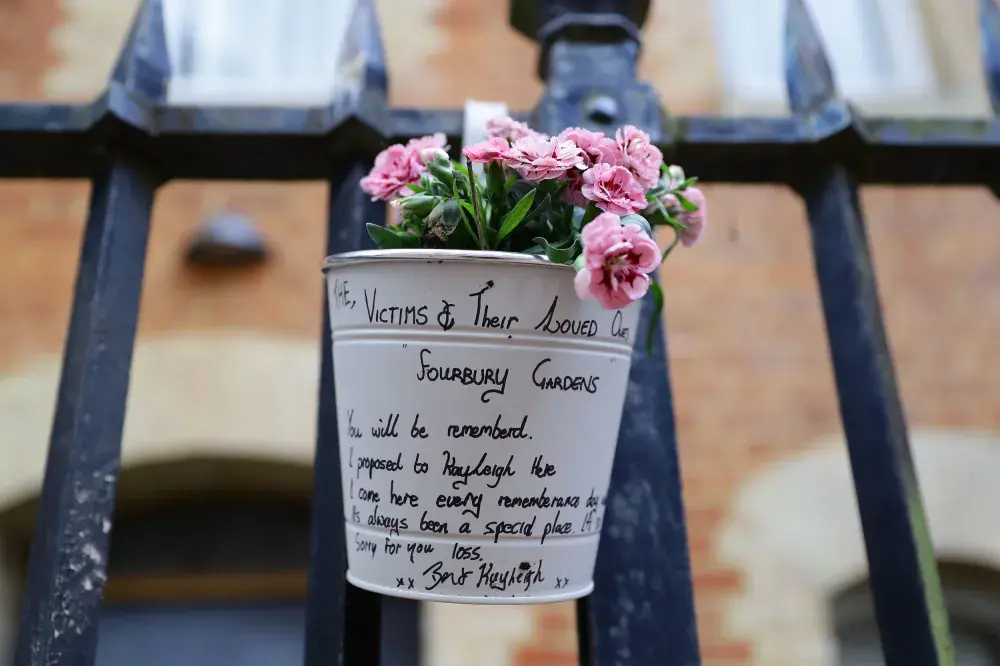 THE, VICTIMS & Their LOVED
"FOURBURY GARDENS"
You will be rememberd.
I proposed to Kayleigh Here
I come here every rememberance day
It's always been a special place.
Sorry for you loss.
xx Ben & Kayleigh xx